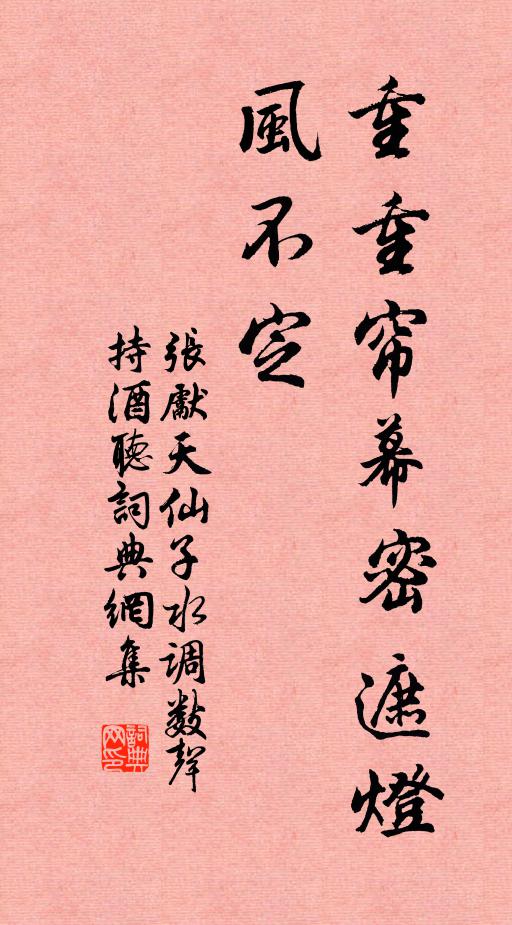 重重帘幕密遮燈
風不定
張獻天仙子水调数聲
持酒聽詞典網集
詞典
网印